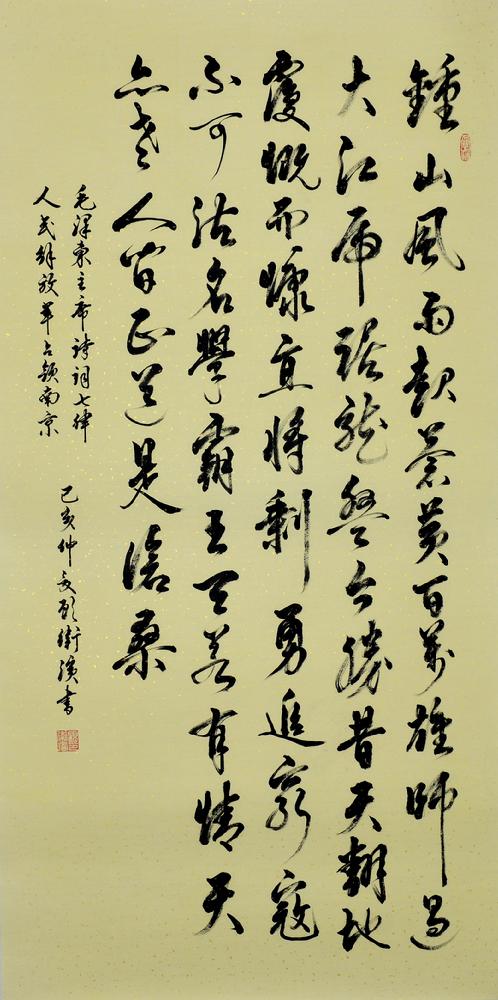 鍾山風雨起蒼黃百萬雄師過
大江虎踞龍盤今勝昔天翻地
覆慨而慷宜將剩勇追窮寇
不可沽名學霸王天若有情天
亦老人間正道是滄桑
毛澤東主席詩詞七律
人民解放軍占領南京
己亥仲夏顧衛濱書